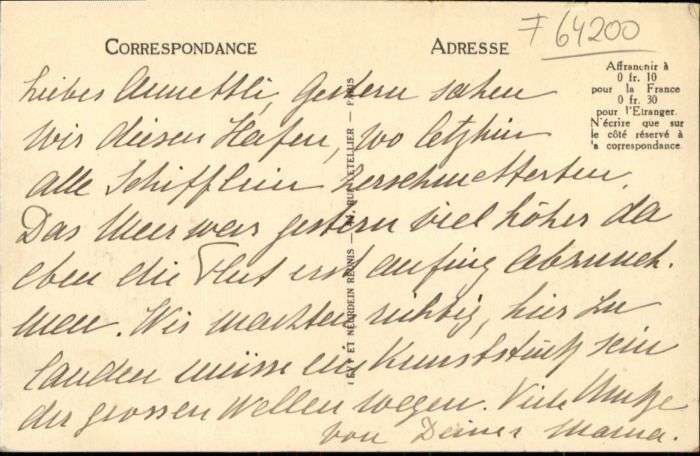 F 64200
CORRESPONDANCE
ADRESSE
Affranchir à
0 fr. 10
pour la France
0 fr. 30
pour l'Etranger.
N'écrire que sur
le côté réservé à
la correspondance.
LEVY ET NEURDEIN RÉUNIS — 44, RUE LETELLIER — PARIS
Liebes Annettli, Gestern sahen
wir diesen Hafen, wo letzhin
alle Schifflein zerschmetterten.
Das Meer war gestern viel höher da
eben die Flut erst anfing abzuneh-
men. Wir merkten richtig, hier zu
landen müsse ein Kunststück sein
der grossen Wellen wegen. Viele
von Deiner Mama.